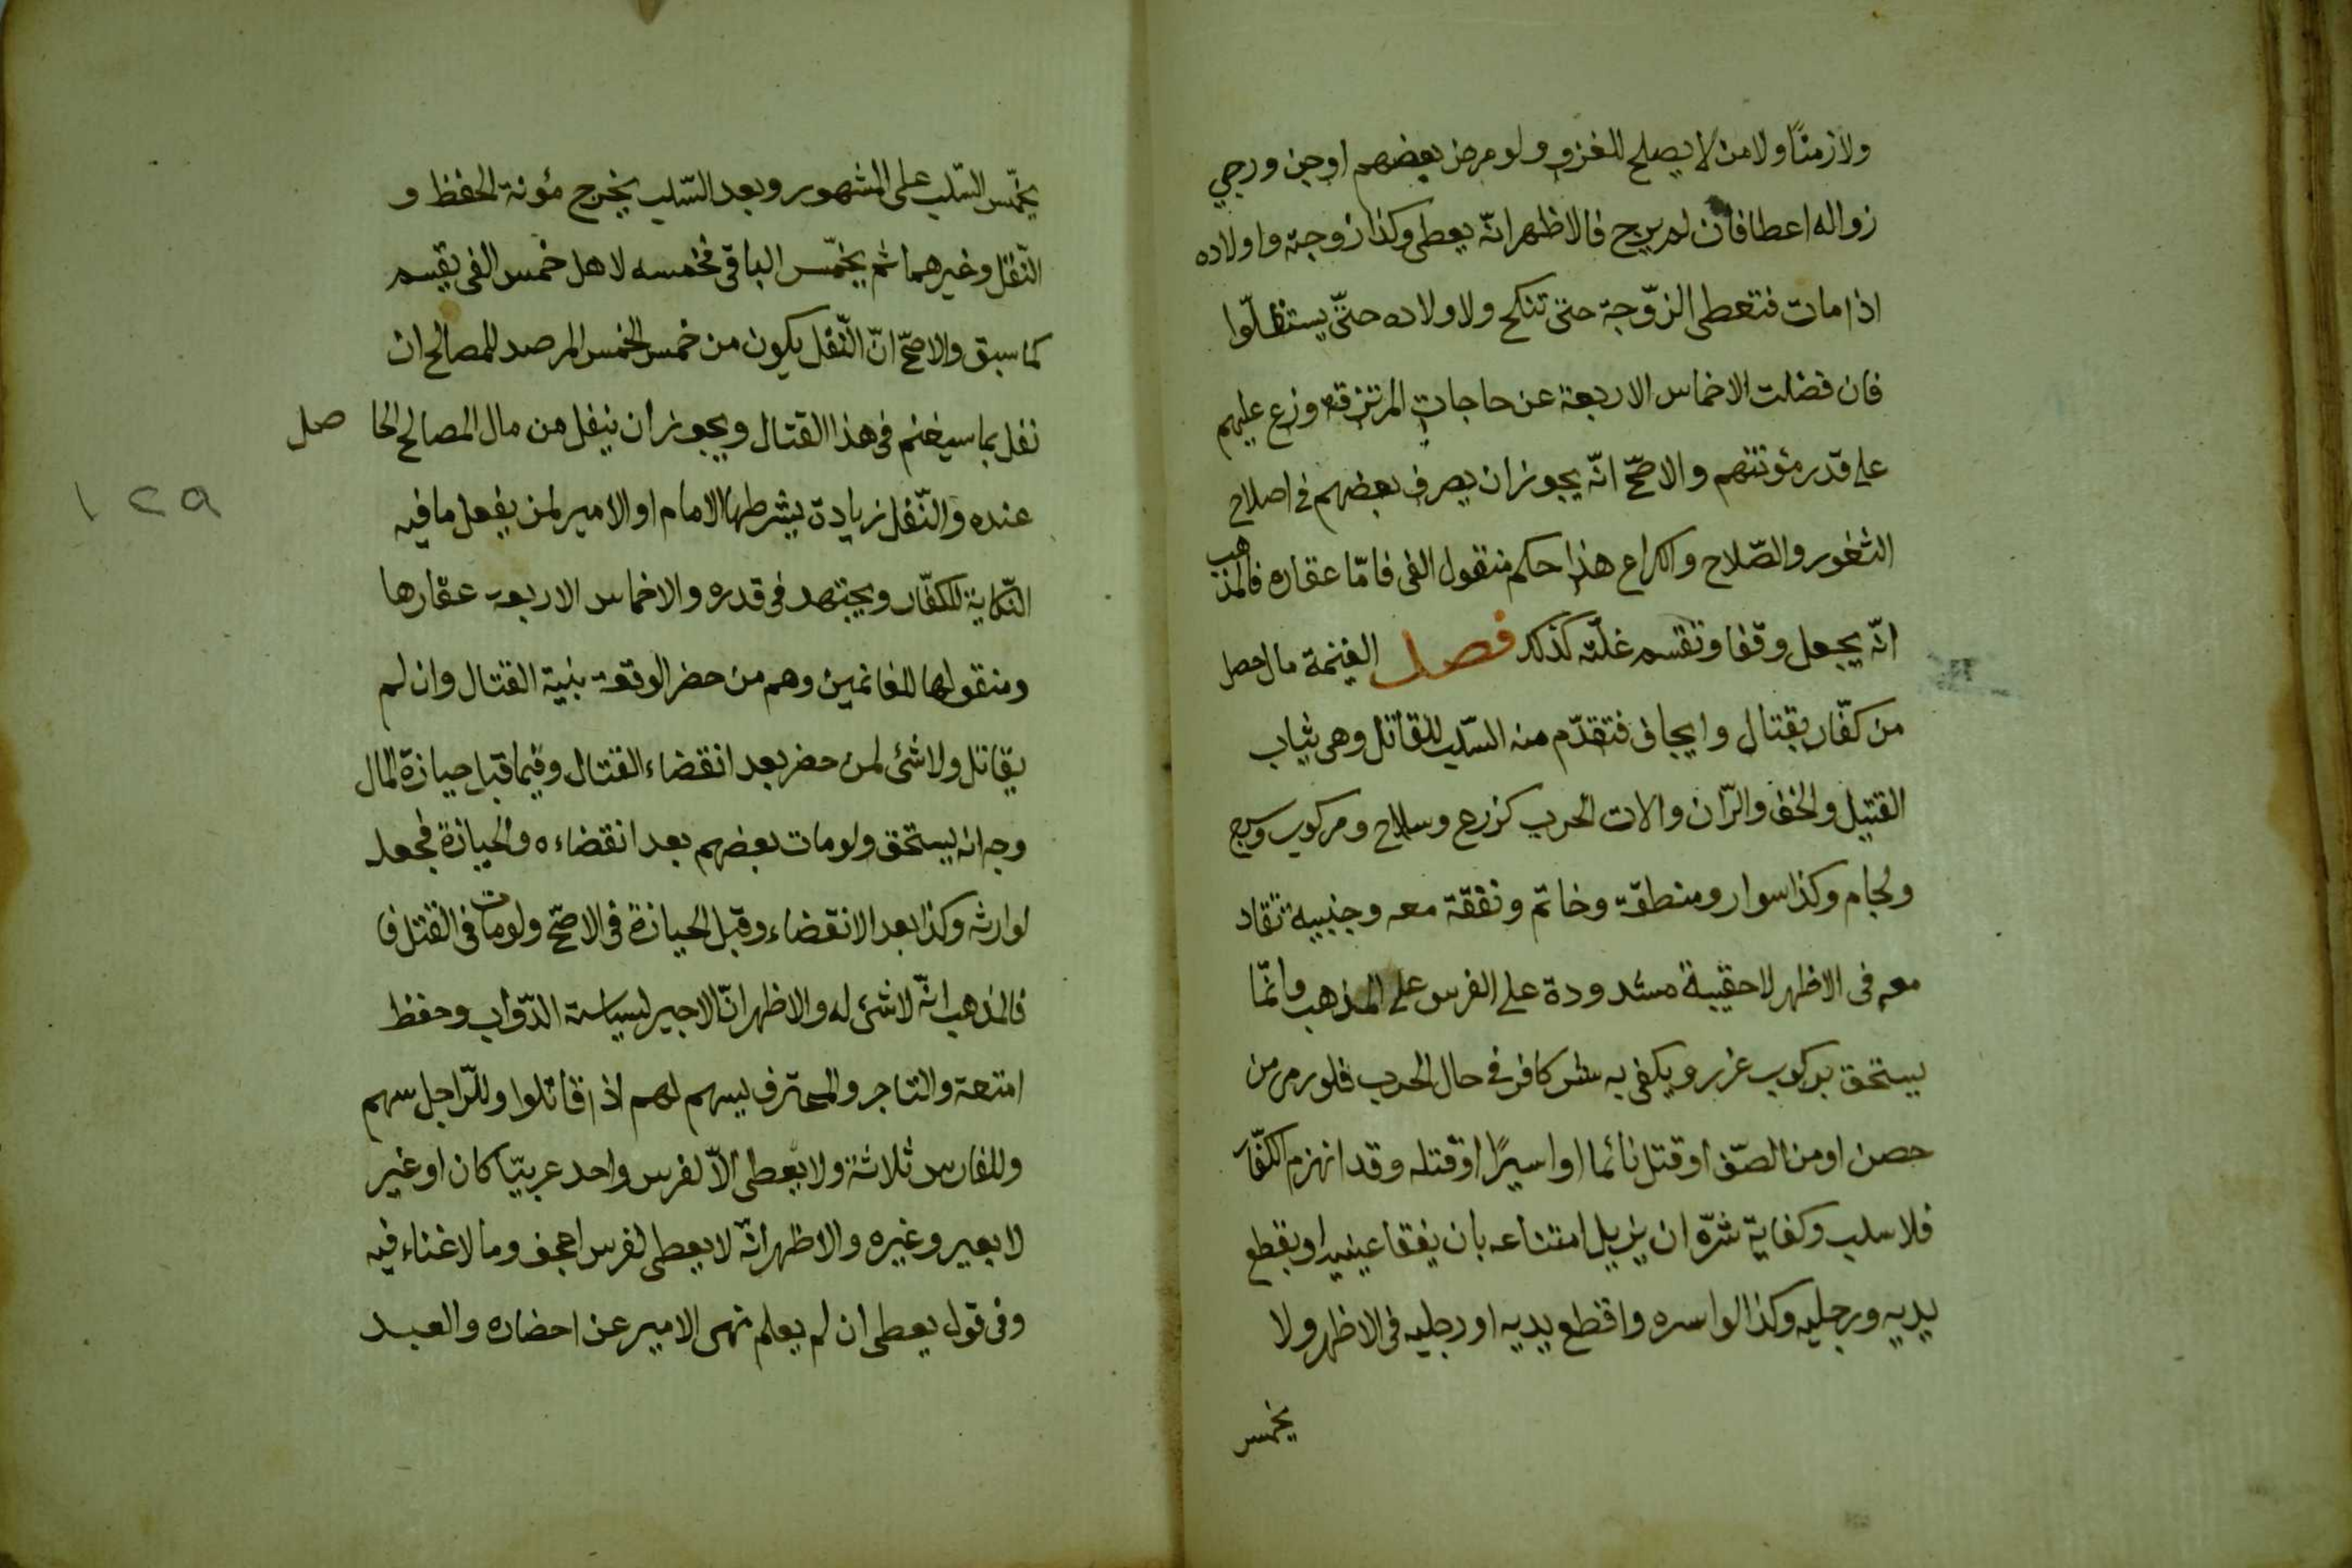 ولا زمنًا ولا من لا يصلح للغزو ولو مرض بعضهم او جن ورجي
زواله اعطا فان لم يرج فالاظهر انّه يعطى وكذا زوجته واولاده
اذا مات فتعطى الزّوجة حتى تنكح ولاولاده حتّى يستقلّوا
فان فضلت الاخماس الاربعة عن حاجات المرتزقة وزع عليهم
على قدر مؤنتهم والاصحّ انّه يجوز ان يصرف بعضهم في اصلاح
الثغور والصّلاح والكراع هذا حكم منقول الفى فامّا عقاره فالمذهب
انّه يجعل وقفا وتقسم غلّته كذلك فصل الغنيمة مال حصل
من كفّار بقتال وايجاف فتقدّم منه السّلب للقاتل وهى ثياب
القتيل والخف والرّان والات الحرب كزرع وسلاح ومركوب وسرج
ولجام وكذا سوار ومنطقة وخاتم ونفقة معه وجنيبة تقاد
معه فى الاظهر لا حقيبة مشدودة على الفرس على المذهب وانّما
يستحق بركوب غرر ويكفى به شر كافر في حال الحرب فلو رمى من
حصن او من الصّف او قتل نائما او اسيرًا او قتله وقد انهزم الكفّار
فلا سلب وكفاية شرّه ان يزيل امتناعه بان يفقا عينيه او يقطع
يديه ورجليه وكذا لو اسره واقطع يديه او رجليه فى الاظهر ولا
يخمس
يخمّس السّلب على المشهور وبعد السّلب يخرج مؤنة الحفظ و
النّقل وغيرهما ثم يخمّس الباقى فخمسه لاهل خمس الفى يقسم
كما سبق والاصحّ انّ النّفل يكون من خمس الخمس المرصد للمصالح ان
نفل بما سيغنم فى هذا القتال ويجوز ان ينفل من مال المصالح الحاصل
١٢٩
عنده والنّفل زيادة يشرطها الامام او الامير لمن يفعل ما فيه
النّكاية للكفّار ويجتهد فى قدره والاخماس الاربعة عقارها
ومنقولها للغانمين وهم من حضر الوقعة بنية القتال وان لم
يقاتل ولا شئ لمن حضر بعد انقضاء القتال وفيما قبل حيازة المال
وجه انه يستحق ولو مات بعضهم بعد انقضاءه والحيازة فجعل
لوارثه وكذا بعد الانقضاء وقبل الحيازة فى الاصحّ ولو مات فى القتل فا
فالمذهب انّه لا شئ له والاظهر انّ الاجير لسياسة الدّواب وحفظ
امتعة والتاجر والمحترف يسهم لهم اذا قاتلوا وللرّاجل سهم
وللفارس ثلاثة ولا يعطى الاّ لفرس واحد عربيّا كان او غير
لا بعير وغيره والاظهر انّه لا يعطى لفرس اعجف وما لا غناء فيه
وفى قول يعطى ان لم يعلم نهى الامير عن احضاره والعبد